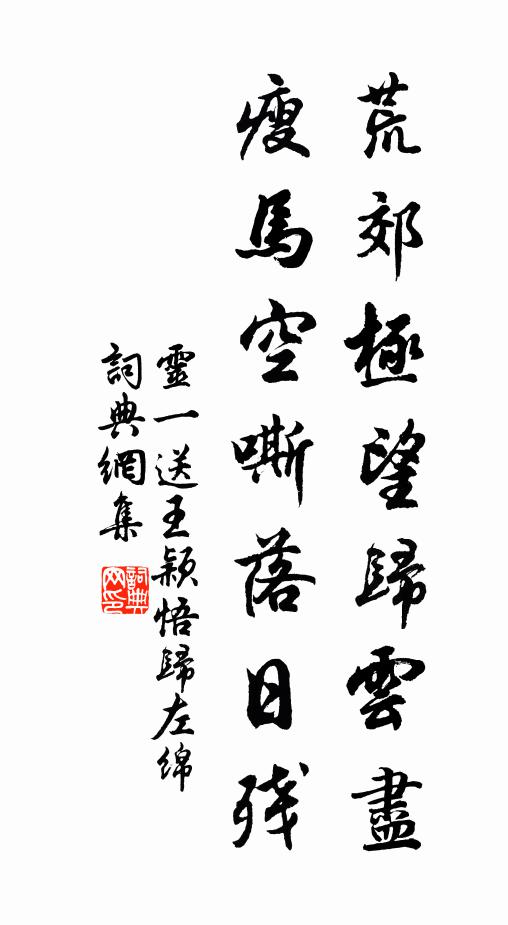 荒郊極望歸雲盡
瘦馬空嘶落日残
靈一送王颖悟歸左綿
詞典網集
詞典网印